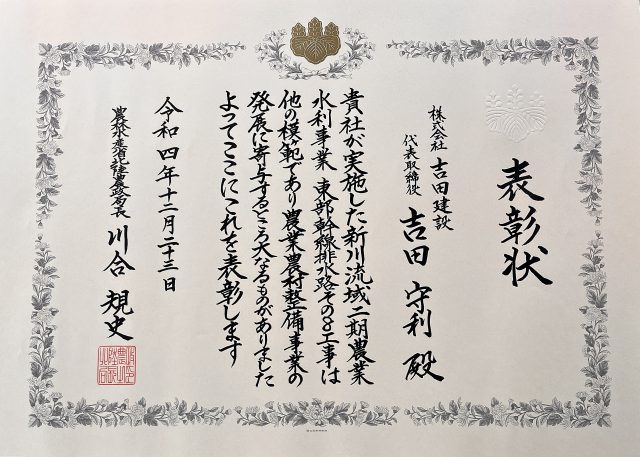 表彰状
株式会社 吉田建設
代表取締役 吉田 守利 殿
貴社が実施した新川流域二期農業
水利事業 東部幹線排水路その8工事は
他の模範であり農業農村整備事業の
発展に寄与するところ大なるものがありました
よってここにこれを表彰します
令和四年十二月二十三日
農林水産省北陸農政局長 川合 規史